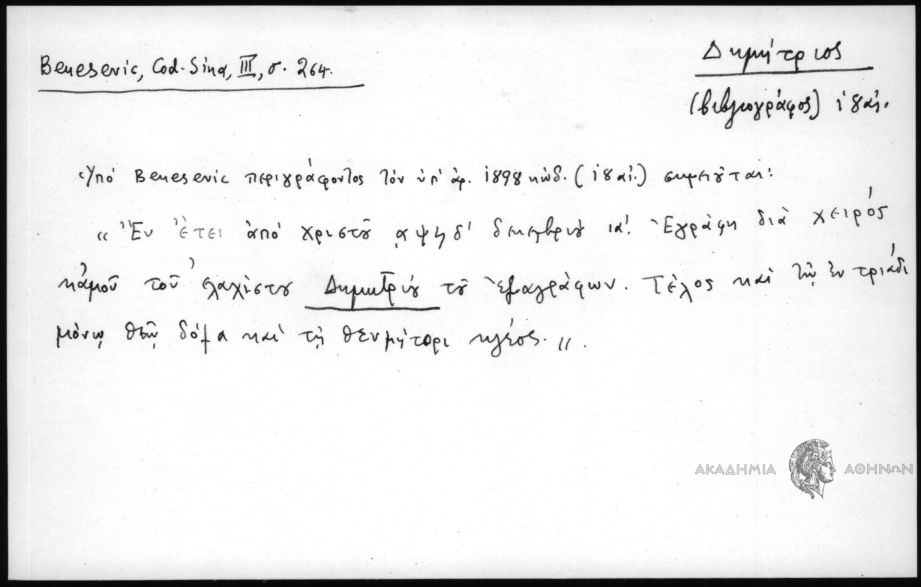 Benesevic, Cod. Sina, III, σ. 264.
Δημήτριος
(βιβλιογράφος) ιηαι.
Υπό Benesevic περιγράφοντος τον υπ' αρ. 1898 κώδ. (ιηαι.) σημειούται:
"Εν έτει από χριστού αψηδ' δεκεμβρίου ια'. Εγράφη διά χειρός
κἀμοῦ τοῦ ελαχίστου Δημητρίου τοῦ . Τέλος καὶ τῷ ἐν τριάδι
μόνῳ θεῷ δόξα καὶ τῇ θεομήτορι κλέος."
ΑΚΑΔΗΜΙΑ ΑΘΗΝΩΝ